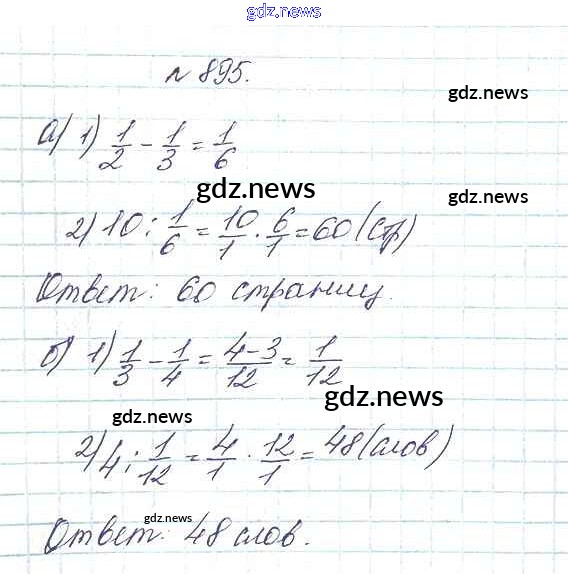 gdz.news
№ 895.
gdz.news
а) 1) 1/2 - 1/3 = 1/6
gdz.news
gdz.news
2) 10 : 1/6 = 10/1 · 6/1 = 60 (стр)
Ответ: 60 страниц.
б) 1) 1/3 - 1/4 = 4-3/12 = 1/12
gdz.news
gdz.news
2) 4 : 1/12 = 4/1 · 12/1 = 48 (слов)
gdz.news
Ответ: 48 слов.